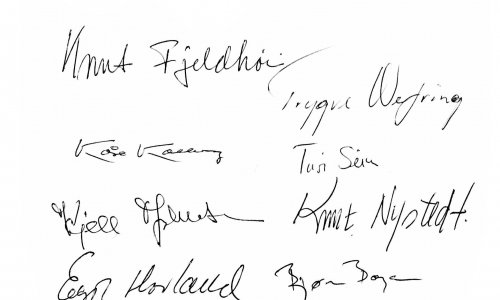 Knut Fjeldhøi
Trygve Wefring
Kåre
Turi Sein
Kjell
Knut Nystedt.
Egil Hovland
Bjørn Boysen